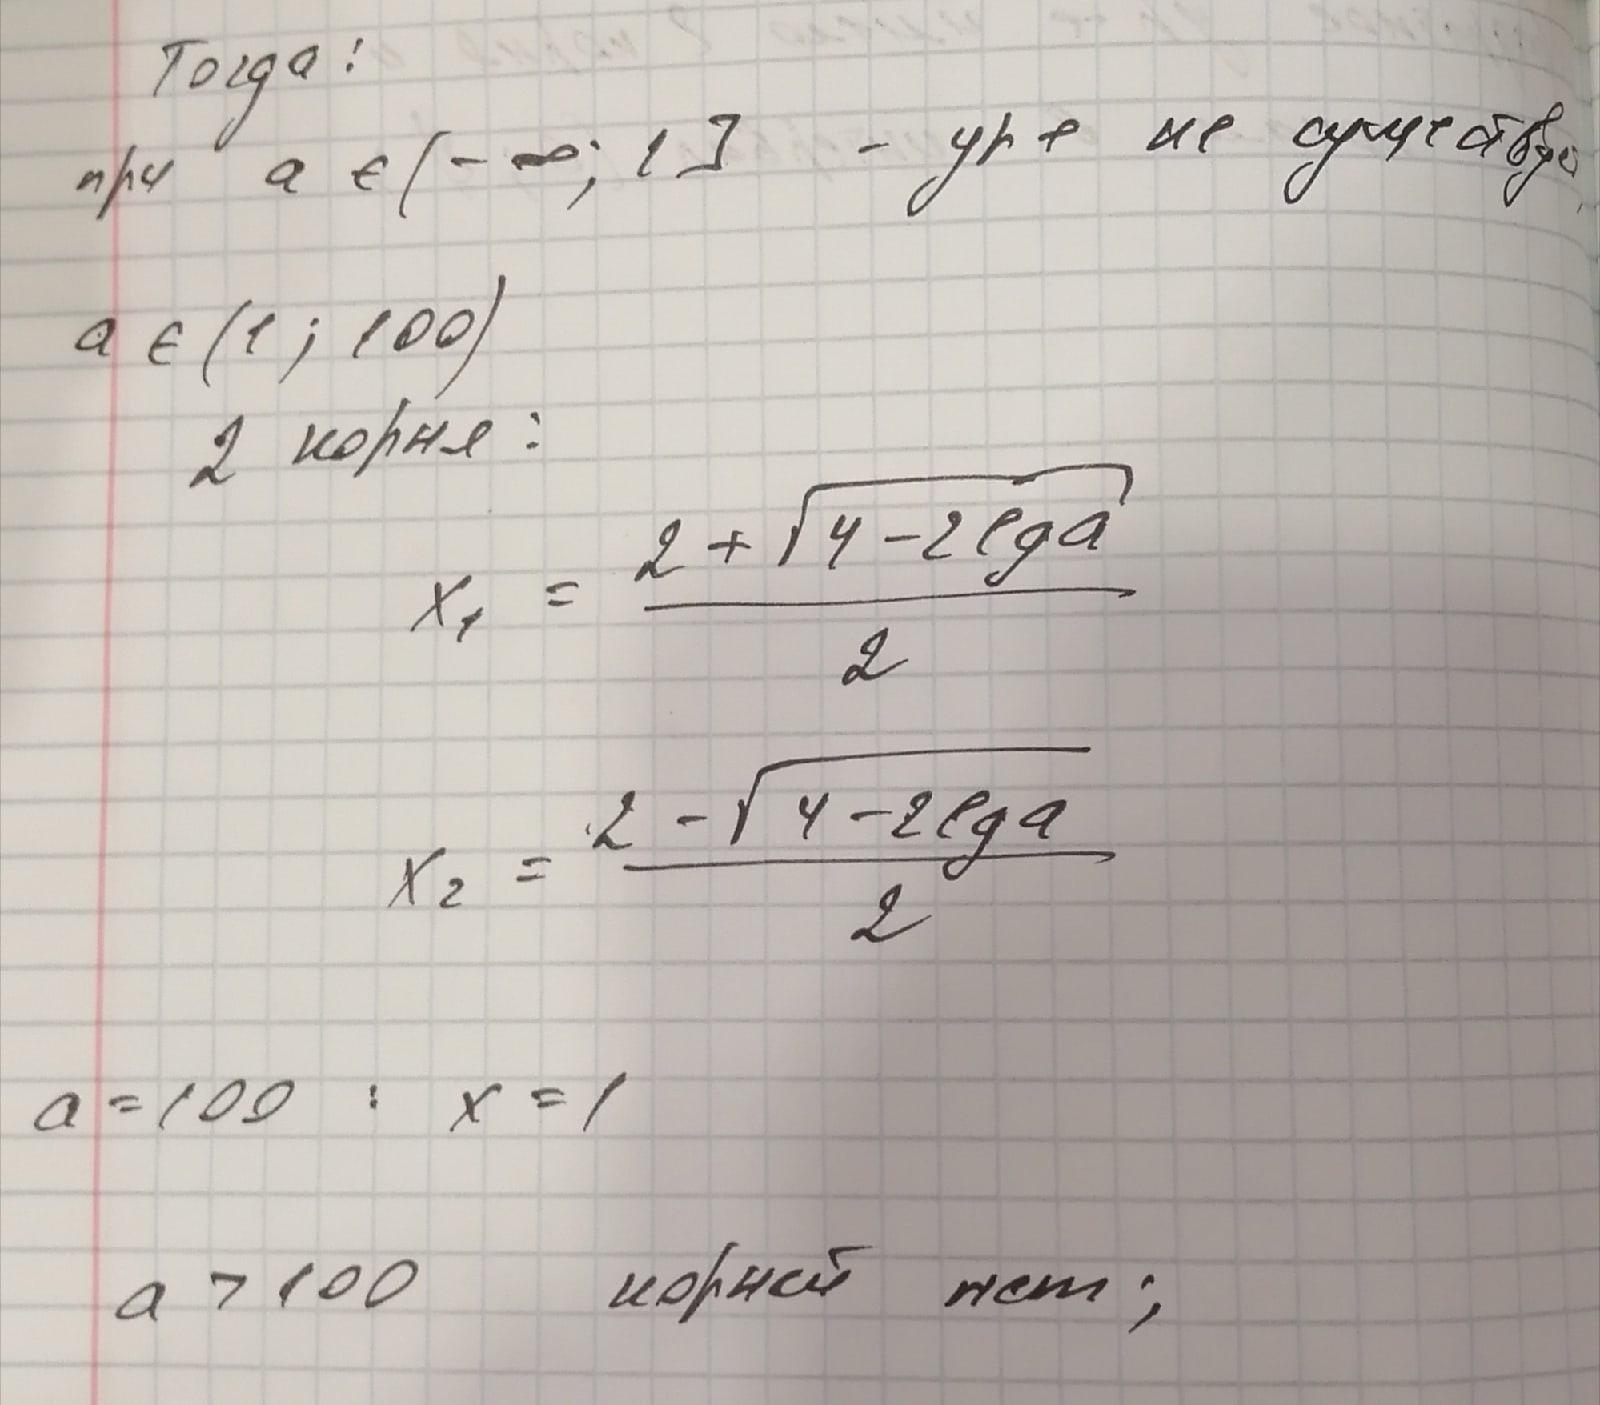 Тогда:
при a ∈ (-∞; 1] - ур-е не существуе
a ∈ (1; 100)
2 корня:
x₁ = (2 + √(4 - 2lga)) / 2
x₂ = (2 - √(4 - 2lga)) / 2
a = 100 : x = 1
a > 100 корней нет;